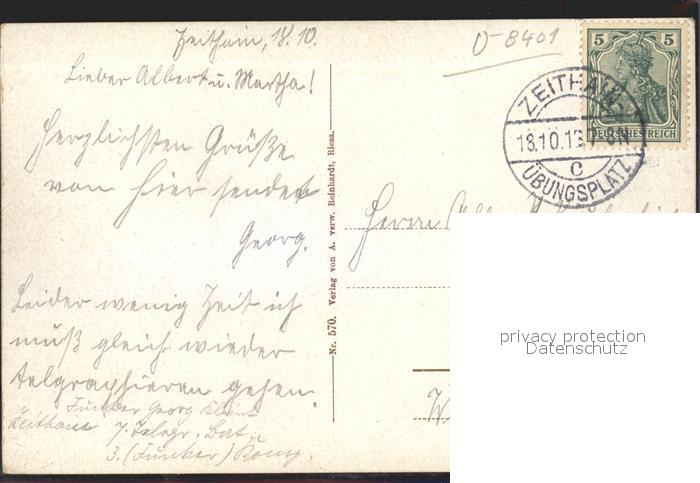 Zeithain, 18.10.
U-8401
Lieber Albert u. Martha!
Herzlichsten Grüße
von hier sendet
Georg.
Leider wenig Zeit ich
muß gleich wieder
telgraphieren gehen.
Funker Georg
Zeithain 7. Telegr. Bat.
3. (Funker) Komp.
Nr. 570. Verlag von A. verw. Reinhardt, Riesa.
5 5
DEUTSCHES REICH
ZEITHAIN
18.10.13 7-8N
C
ÜBUNGSPLATZ
Herrn
privacy protection
Datenschutz